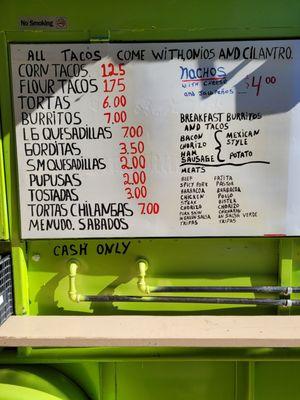 No Smoking
ALL TACOS COME WITH, ONIOS AND CILANTRO.
CORN TACOS 125
FLOUR TACOS 175
TORTAS 6.00
BURRITOS 7.00
LG QUESADILLAS 700
GORDITAS 3.50
SM QUESADILLAS 2.00
PUPUSAS 2.00
TOSTADAS 3.00
TORTAS CHILANGAS 7.00
MENUDO. SABADOS
NACHOS
WITH CHEESE
AND JALAPEÑOS 4.00
BREAKFAST BURRITOS
AND TACOS
BACON
CHORIZO
HAM
SAUSAGE
MEXICAN
STYLE
POTATO
MEATS
BEEF FAJITA
SPICY PORK PASTOR
BARBACOA BARBACOA
CHICKEN POLLO
STEAK BISTEK
CHORIZO CHORIZO
PORK SKIN
IN GREEN SALSA EN SALSA VERDE
TRIPAS TRIPAS
CASH ONLY